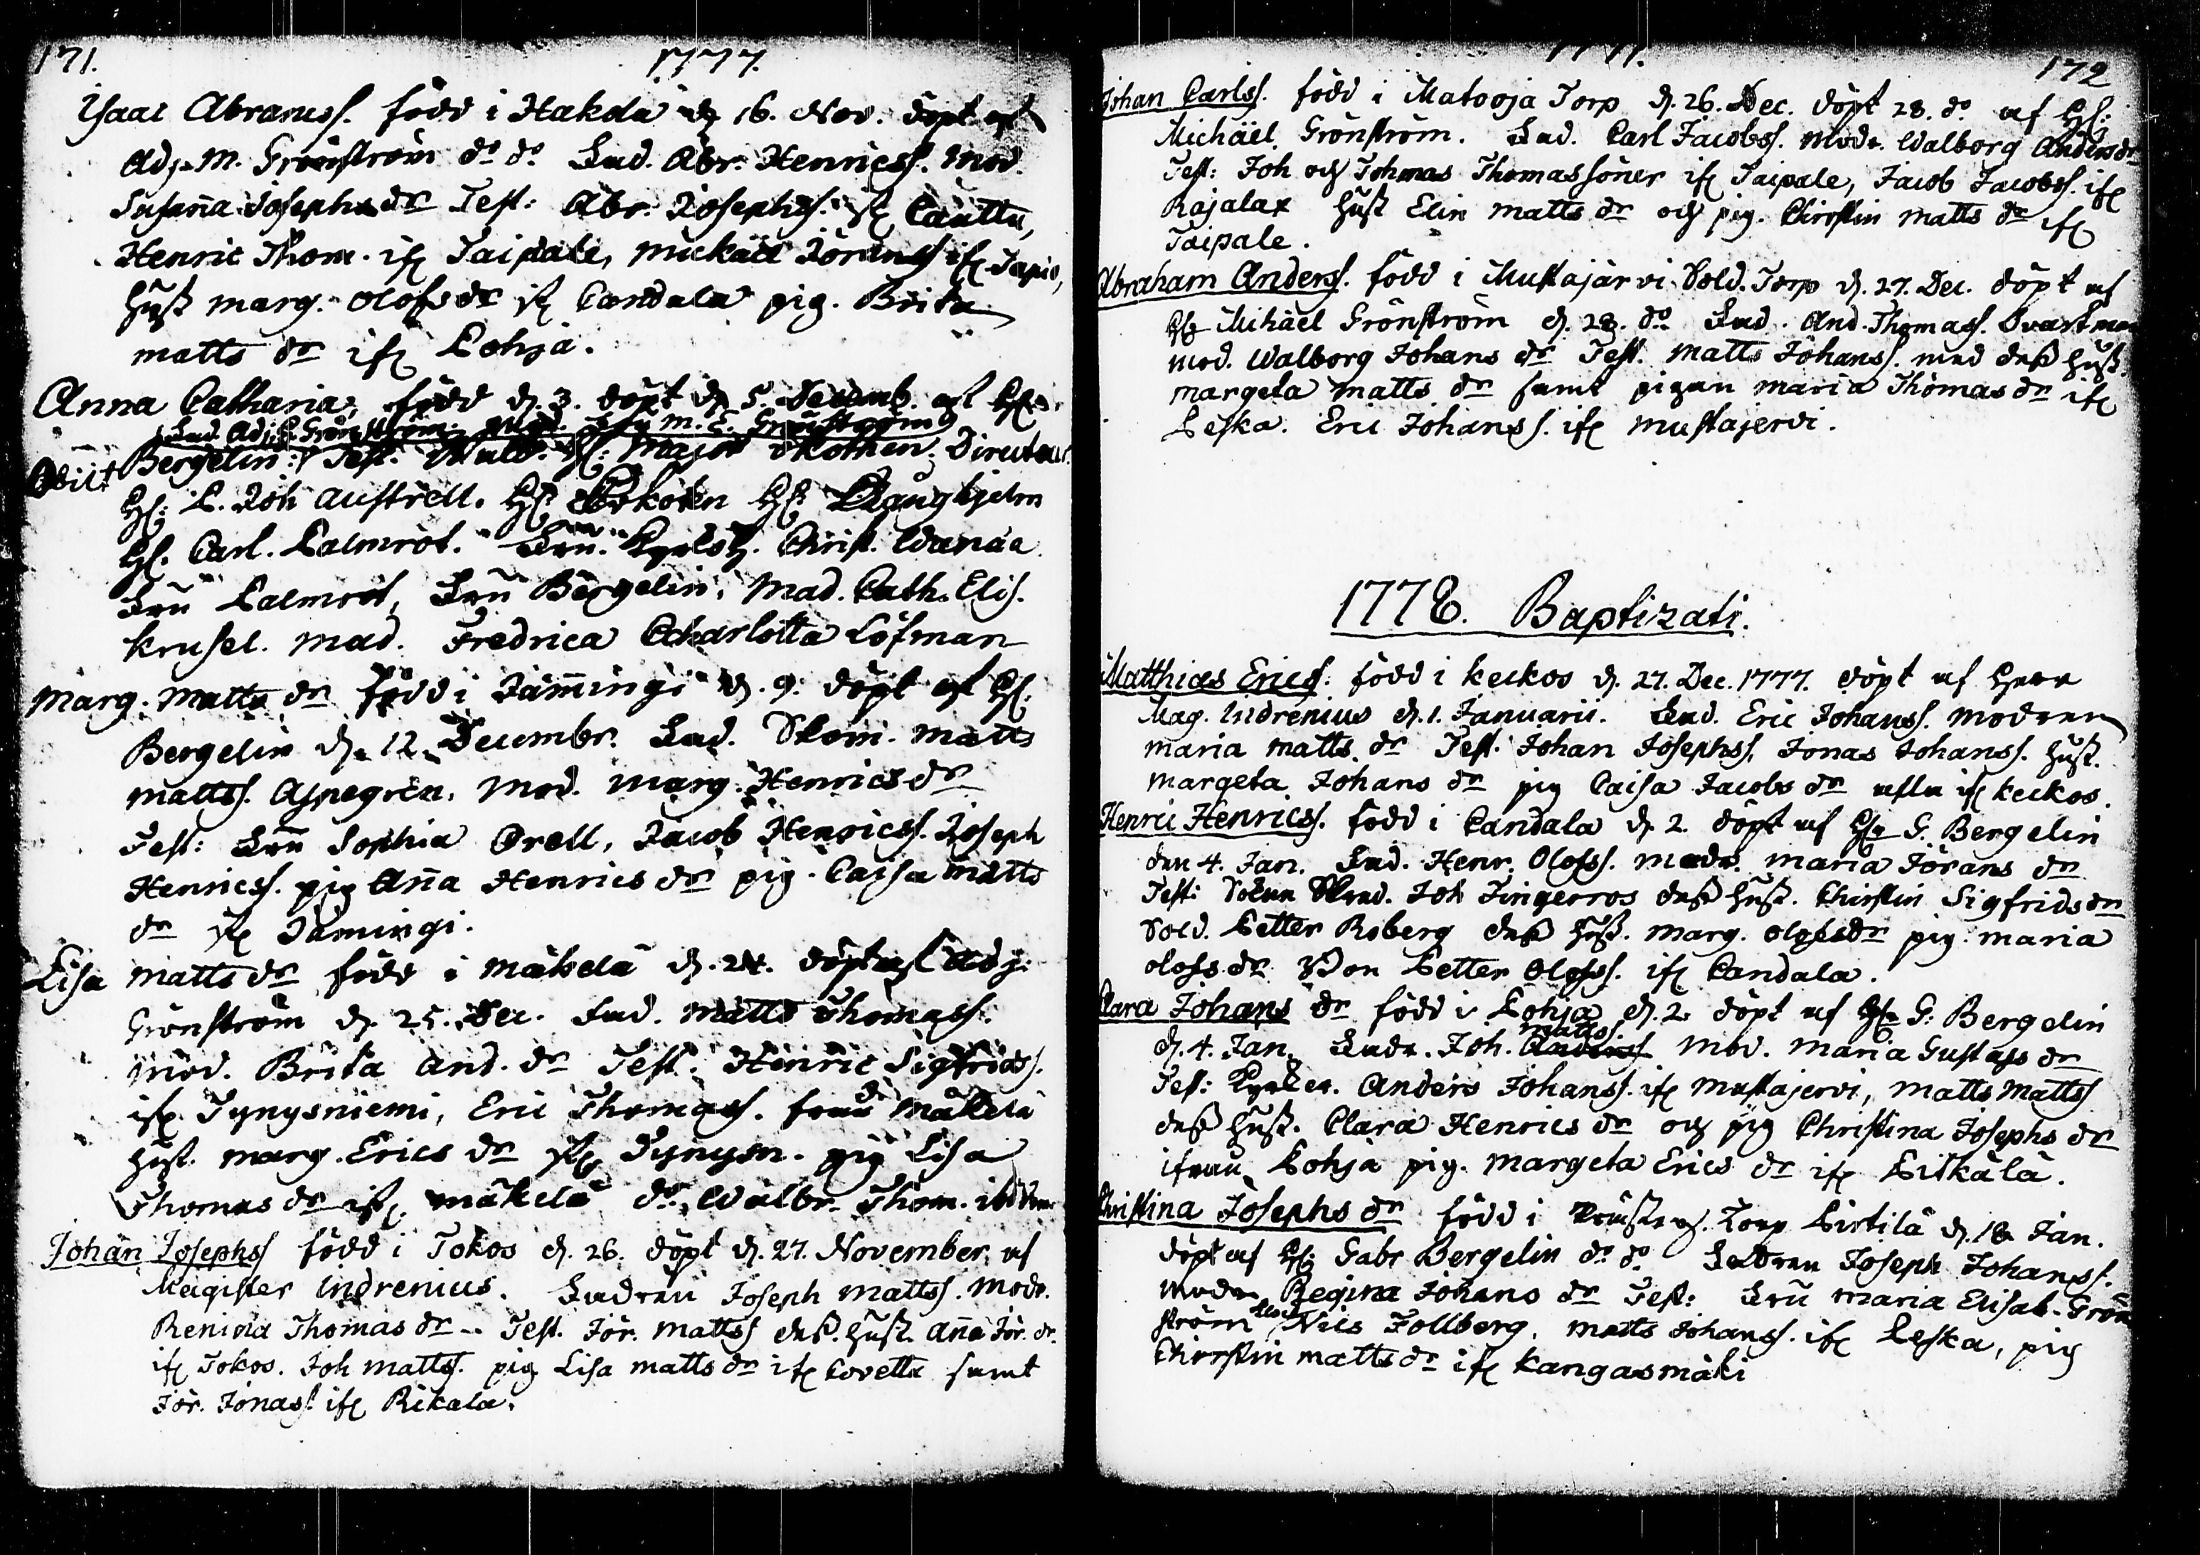 171. 1777.
Isaac Abramss. född i Hakola d. 16. Nov. döpt af
Adj. M. Grönström do do. Fad. Abr. Henricss. Mod.
Susaña Josephs dr Test: Abr. Josephss. ifr Cauttu,
Henric Thom. ifr Taipale, Mickäel Jöranss ifr Tapio,
hust marg. Olofs dr ifr Candala pig. Brita
matts dr ifr Lohja.
Anna Catharia, född d. 3. döpt d. 5. Decemb. af Hr
Fad. Adj. Grönström. Mod. Fru M. E. Grönström
Obiit Bergelin: Test. Major Directeur
Hr: L. Joh Austrell. Hr Hr
Hr. Carl. Palmrot. Fru. Christ.
Fru Palmrot, Fru Bergelin, Mad. Cath. Elis.
Krusel. Mad. Fredrica Charlotta Löfman
Marg. Matts dr född i Jäm̃ingi d. 9. döpt af Hr.
Bergelin d. 12. Decembr. Fad. Matts
mattss. Aspegren. Mod. Marg. Henrics dr
Test: Fru Sophia Orell, Jacob Henricss. Joseph
Henricss. pig Aña Henrics dr pig. Caisa matts
dr ifr Jämingi.
Lisa Matts dr född i Mäkelä d. 24. döpt af Adj.
Grönström d. 25. Dec. Fad. Matts Thomass.
Mod. Brita And. dr Test. Henric Sigfridss.
ifr Tynysniemi, Eric Thomass. från Mäkelä
hust. marg. Erics dr ifr Tynysn. pig Lisa
Thomas dr ifr mäkelä do Walbr. Thom. ibidem
Johan Josephss född i Tokos d. 26. döpt d. 27. November. af
Magister Indrenius. Fadren Joseph Mattss. Modr.
Thomas dr Test. Jör. Mattss dess hust. Aña Jör. dr.
ifr Tokos. Joh Mattss. pig Lisa matts dr ifr Covetta samt
Jör. Jönass. ifr Rikala.
1777. 172
Johan Carlss. född i Matooja Torp d. 26. Dec. döpt 28. do af Hr:
Michäel Grönström. Fad. Carl Jacobss. Modr. Walborg Anders dr
Test: Joh och Thomas Thomassöner ifr Taipale, Jacob Jacobss. ifr
Rajalax hust Elin Matts dr och pig. Christin Matts dr ifr
Taipale.
Abraham Anderss. född i Mustajärvi Sold. Torp d. 27. Dec. döpt af
Hr Mihäel Grönström d. 28. do Fad. And. Thomass.
mod. Walborg Johans dr Test. Matts Johanss. med dess hust
margeta Matts dr samt pigan Maria Thomas dr ifr
Leska. Eric Johanss. ifr Mustajervi.
1778. Baptizati.
Matthias Ericss: född i Keckos d. 27. Dec. 1777. döpt af Herr
Mag. Indrenius d. 1. Januarii. Fad. Eric Johanss. Modren
Maria Matts dr Test. Johan Josephss, Jonas Johanss. hust.
Margeta Johans dr pig Caisa Jacobs dr alla ifr Keckos.
Henric Henricss. född i Candala d. 2. döpt af Hr G. Bergelin
den 4. Jan. Fad. Henr. Olofss. modr. Maria Jörans dr
Test: Joh Tingerros dess hust. Christin Sigfrids dr
Sold. Petter Roberg dess hust. Marg. Olofs dr pig. Maria
olofs dr Petter Olofss. ifr Candala.
Clara Johans dr född i Lohja d. 2. döpt af Hr G: Bergelin
mattss.
d. 4. Jan. Fadr. Joh. Anderss Mod. Maria Gustafs dr
Test: Anders Johanss. ifr Mustajervi, Matts Matts
dess hust. Clara Henrics dr och pig Christina Josephs dr
ifrån Lohja pig. Margeta Erics dr ifr Pitkälä.
Christina Josephs dr född i Torp Pirtilä d. 18. Jan.
döpt af Hr: Gabr Bergelin do do Fadren Joseph Johanss.
modr Regina Johans dr Test: Fru Maria Elisab. Grön
ström Nils Follberg. Matts Johanss. ifr Leska, pig
Christin matts dr ifr Kangasmäki